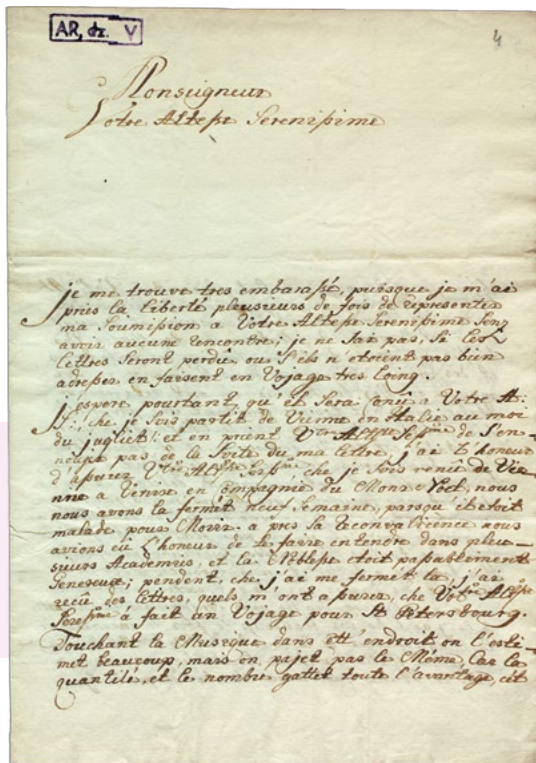 AR, dz. V
4
Monseigneur
Votre Altesse Serenissime
je me trouve tres embarassé, puisque je m'ai
pries la Liberté pleusieurs de fois de representer
ma Soumission a Votre Altesse Serenissime Sens
avoir aucune rencontre; je ne sai pas, Si les
Lettres Seront perdu ou S'ils n'etoient pas bien
adresses en faisent en Vojage tres loing.
j'espere pourtant qu'el Sera a Votre At:
S: che je Suis partit de Vienne en Italie au moi
du jugliet: et en prient de S'en-
pas de la Suite du ma Lettre, j'ai l'honeur
d'assurer che je Suis venu de Vie
nne a Venise en Compagnie du Mons: Noel, nous
nous avons la fermet neuf Semaine, parsqu'il etoit
malade pour Morir. a pres la reconvalecence nous
avions eu l'honeur de Se faire entendre dans pleu-
sieurs Academies, et la Noblesse etoit passablement
Genereux; pendent, che j'ai me fermet la, j'ai
recu des lettres, quels m'ont assurer, che Votre Altesse
á fait un Vojage pour St Petersbourg.
Touchant la Musique dans cett' endroit on l'esti-
met beaucoup, mais on pajet pas le Même, Car la
quantité, et le nombre gattet toute l'avantage, cet